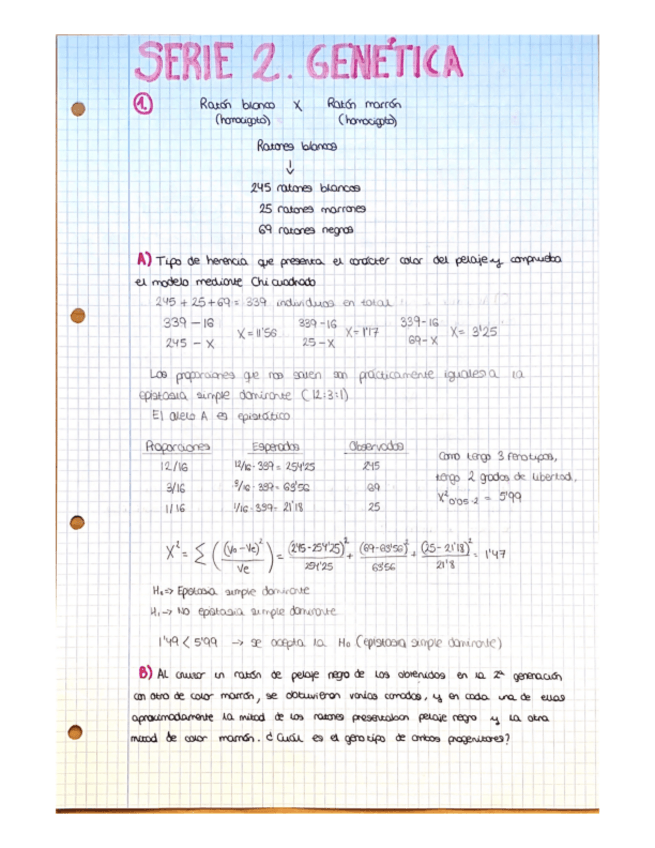 SERIE 2. GENÉTICA
1. Ratón blanco X Ratón marrón
(homocigoto) (homocigoto)
Ratones blancos
↓
245 ratones blancos
25 ratones marrones
69 ratones negros
A) Tipo de herencia que presenta el carácter color del pelaje y comprueba
el modelo mediante Chi cuadrado
245 + 25 + 69 = 339 individuos en total
339 - 16 339 - 16 339 - 16
245 - X X = 11'56 25 - X X = 1'17 69 - X X = 3'25
Las proporciones que nos salen son prácticamente iguales a la
epistasia simple dominante (12:3:1)
El alelo A es epistático
Proporciones Esperados Observados
12/16 12/16 · 339 = 254'25 245
3/16 3/16 · 339 = 63'56 69
1/16 1/16 · 339 = 21'18 25
Como tengo 3 fenotipos,
tengo 2 grados de libertad,
X² 0'05·2 = 5'99
X² = Σ ((Vo - Ve)² / Ve) = (245 - 254'25)² / 254'25 + (69 - 63'56)² / 63'56 + (25 - 21'18)² / 21'8 = 1'47
H₀ => Epistasia simple dominante
H₁ -> NO epistasia simple dominante
1'49 < 5'99 → se acepta la H₀ (epistasia simple dominante)
B) Al cruzar un ratón de pelaje negro de los obtenidos en la 2ª generación
con otro de color marrón, se obtuvieron varias camadas, y en cada una de ellas
aproximadamente la mitad de los ratones presentaban pelaje negro y la otra
mitad de color marrón. ¿Cuál es el genotipo de ambos progenitores?